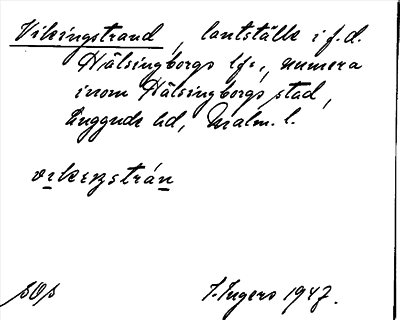 Vikingstrand, lantställe i f.d.
Hälsingborgs lf., numera
inom Hälsingborgs stad,
Luggude hd, Malm. l.
vikeŋstrán
SOS
I. Ingers 1947.